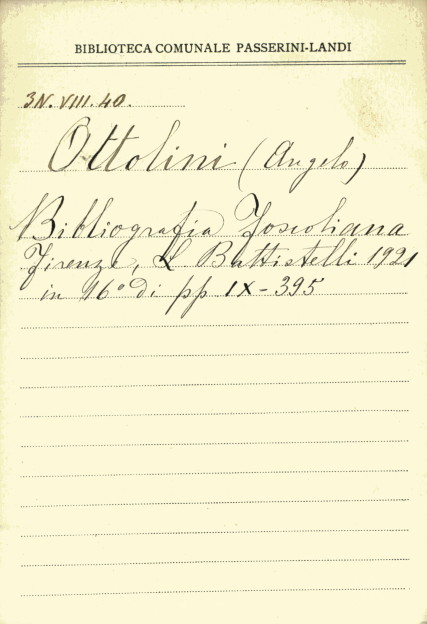 BIBLIOTECA COMUNALE PASSERINI-LANDI
3N.VIII.40.
Ottolini (Angelo)
Bibliografia Foscoliana
Firenze, L Battistelli 1921
in 16° di pp IX-395